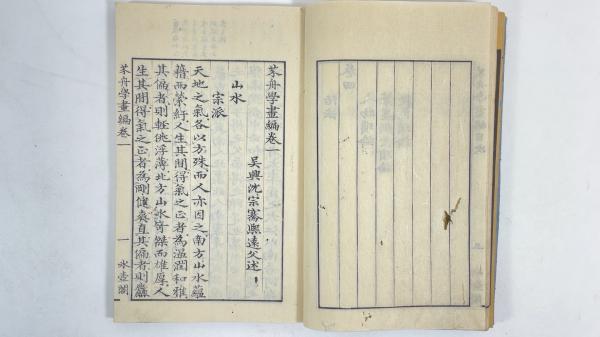 芥舟學畫編卷一
吳興沈宗騫熙遠父述
山水
宗派
天地之氣各以方殊而人亦因之南方山水蘊
藉而縈紆人生其間得氣之正者為溫潤和雅
其偏者則輕佻浮薄北方山水奇傑而雄厚人
生其間得氣之正者為剛健爽直其偏者則麤
芥舟學畫編卷一
一
冰壺閣